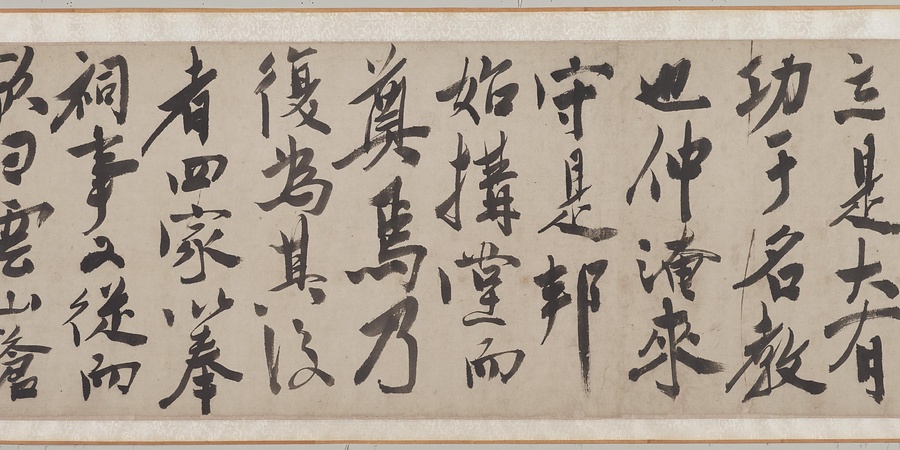 立是大有
功于名教
也仲淹來
守是邦
始搆堂而
奠焉乃
復為其後
者四家以奉
祠事又從而
歌曰雲山蒼